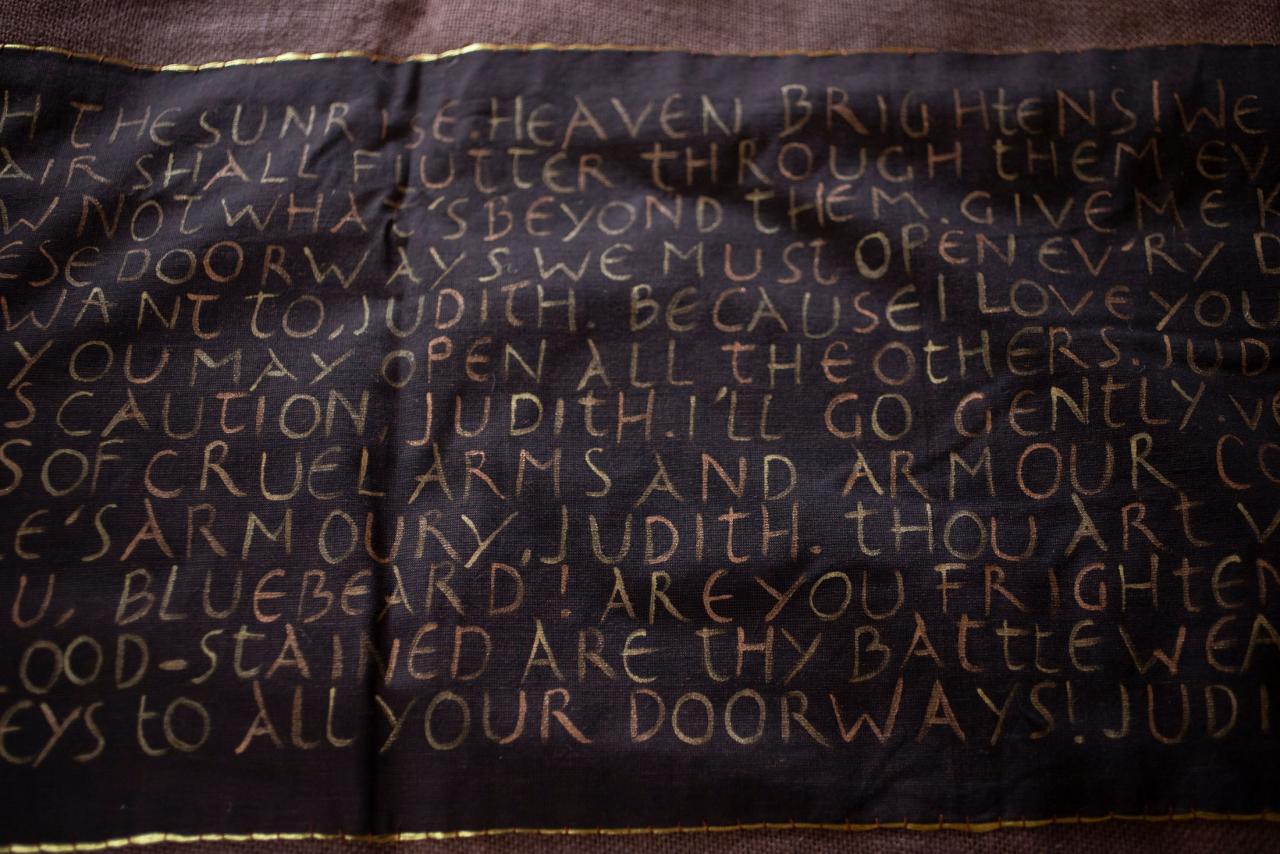 H THE SUNRISE. HEAVEN BRIGHTENS! WE
AIR SHALL FLUTTER THROUGH THEM EV
W NOT WHAT'S BEYOND THEM. GIVE ME K
ESE DOORWAYS. WE MUST OPEN EV'RY D
WANT TO, JUDITH. BECAUSE I LOVE YOU
YOU MAY OPEN ALL THE OTHERS. JUD
S CAUTION, JUDITH. I'LL GO GENTLY. VE
S OF CRUEL ARMS AND ARMOUR CO
E'S ARMOURY, JUDITH. THOU ART V
U, BLUEBEARD! ARE YOU FRIGHTEN
OOD-STAINED ARE THY BATTLE WEA
EYS TO ALL YOUR DOORWAYS! JUDI